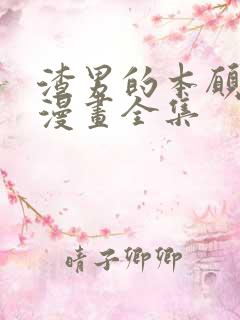 渣男的本願
漫畫全集
晴子卿卿